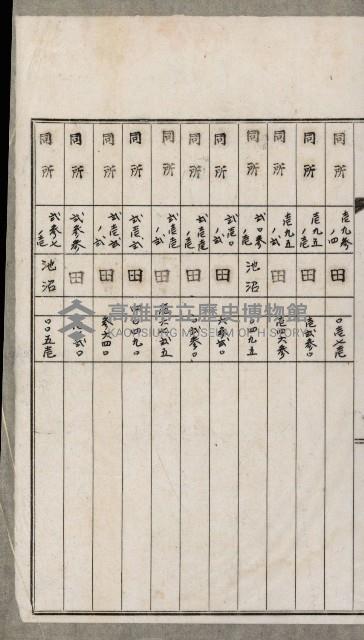 同所 壱九参ノ四 田
同所 壱九五ノ壱 田 壱弐参〇
同所 壱九五ノ弐 田 壱四六参
同所 弐〇参ノ弐 池沼 〇四九五
同所 弐壱〇 田
同所 田 〇弐参〇
同所 弐壱壱ノ弐 田
同所 弐壱弐 田 〇四九〇
同所 弐壱弐ノ弐 田 参六四〇
同所 弐参参 田
同所 弐参七ノ壱 池沼 〇〇五壱
高雄市立歷史博物館
KAOHSIUNG MUSEUM OF HISTORY